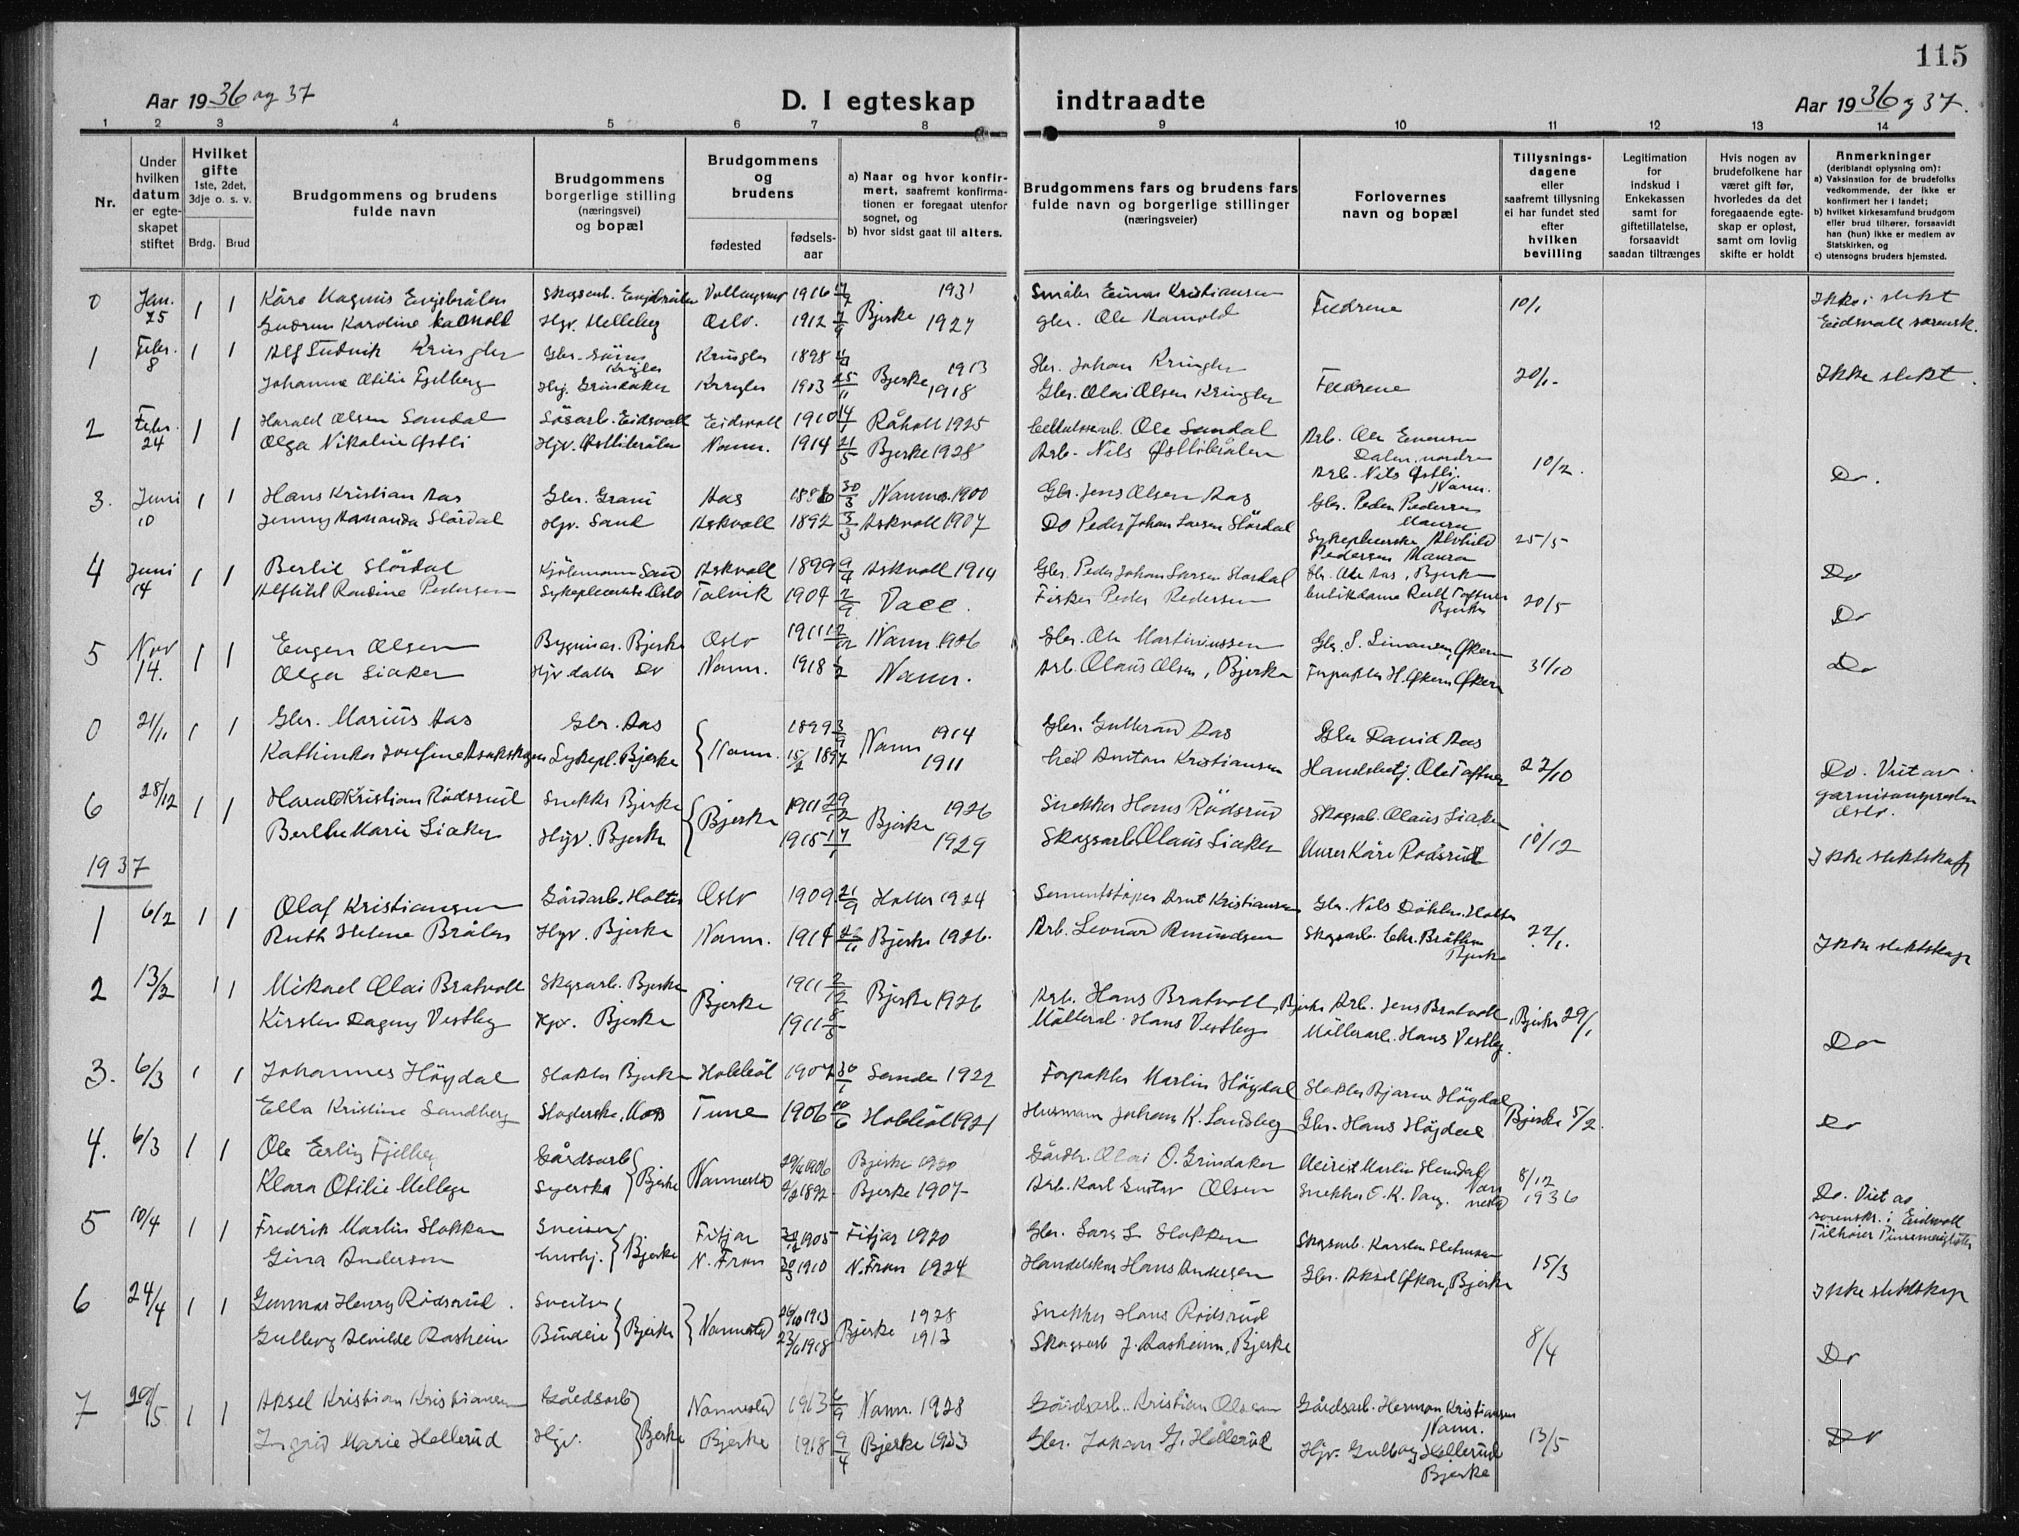 115
Aar 1936 og 37
D. I egteskap indtraadte
Aar 1936 og 37.
1 2 3 4 5 6 7 8 9 10 11 12 13 14
Nr.
Under hvilken datum er egteskapet stiftet
Hvilket gifte 1ste, 2det, 3dje o. s. v.
Brdg. Brud
Brudgommens og brudens fulde navn
Brudgommens borgerlige stilling (næringsvei) og bopæl
Brudgommens og brudens
fødested
fødselsaar
a) Naar og hvor konfirmert, saafremt konfirmationen er foregaat utenfor sognet, og
b) hvor sidst gaat til alters.
Brudgommens fars og brudens fars fulde navn og borgerlige stillinger (næringsveier)
Forlovernes navn og bopæl
Tillysningsdagene eller saafremt tillysning ei har fundet sted efter hvilken bevilling
Legitimation for Indskud i Enkekassen samt for giftetillatelse, forsaavidt saadan tiltrænges
Hvis nogen av brudefolkene har været gift før, hvorledes da det foregaaende egteskap er opløst, samt om lovlig skifte er holdt
Anmerkninger (deriblandt oplysning om):
a) Vaksination for de brudefolks vedkommende, der ikke er konfirmert her i landet;
b) hvilket kirkesamfund brudgom eller brud tilhører, forsaavidt han (hun) ikke er medlem av Statskirken, og
c) utensogns bruders hjemsted.
0 Jan. 25 1 1 Kåre Magnus 1916 Bjerke 1931 Einar Kristiansen Fædrene 10/1 Ikke i slekt
Gudrun Karoline Hgv. Helleberg Oslo. 1912 1927 Gbr. Ole Eidsvoll sorensk.
1 Febr. 8 1 1 Alf Ludvik Kringler Gbr. Kringler 1898 Bjerke 1913 Gbr. Johan Kringler Fædrene 20/1 Ikke slekt.
Johanne Otilie Fjelberg Hgv. Grindaker Kringler 1903 25/11 1918 Gbr. Olai Olsen Kringler
2 Febr. 24 1 1 Harald Olsen Sandal Eidsvoll Eidsvoll 1910 14/1 Råholt 1925 Ole Sandal Arb. Ole Evensen Dalen, nordre 10/2. Do.
Olga Nikoline Østli Hgv. Østlibråten Nann. 1914 21/5 Bjerke 1928 Arb. Nils Østlibråten Arb. Nils Østli Nann.
3. Juni 10 1 1 Hans Kristian Aas Gbr. Grani Aas 1886 30/3 Nannes. 1900 Gbr. Jens Olsen Aas Gbr. Peder Pedersen Maura 25/5 Do
Jenny Amanda Slørdal Hgv. Sand Askvoll 1892 Askvoll 1907 Do Peder Johan Larsen Slørdal Sykepleierske Alvhild Pedersen Maura
4 Juni 14 1 1 Bertil Slørdal Kjøbmann Sand Askvoll 1899 9/9 Askvoll 1914 Gbr. Peder Johan Larsen Slørdal Gbr. Ole Aas, Bjerke 20/5 Do
Pedersen Oslo Talvik 1904 2/9 Fisker Peder Pedersen Bjerke
5 Nov 14. 1 1 Eugen Olsen Bjerke Oslo 1911 Nann. 1926 Gbr. Ole Martiniussen Gbr. S. Simonsen, Økern 31/10 Do
Olga Liaker Hgv. datter Do Nann. 1918 Nann. Arb. Olaus Olsen, Bjerke Forpakter H. Økern Økern
0 21/11 1 1 Gbr. Marius Aas Gbr. Aas Nann. 1899 3/9 Nann 1914 Gbr. Gulbrand Aas Gbr David Aas 27/10 Do. Viet av garnisonspresten Oslo.
Kathinka Josefine Sykepl. Bjerke 15/2 1897 1911 Anton Kristiansen Handelsbetj. Ole Toftner
6 28/12 1 1 Harald Kristian Rødsrud Snekker Bjerke Bjerke 1911 29/12 Bjerke 1926 Snekker Hans Rødsrud Skogsarb. Olaus Liaker 10/12 Ikke slektskap
Berthe Marie Liaker Hgv. Bjerke 1915 17/1 1929 Skogsarb Olaus Liaker Murer Kåre Rødsrud
1937
1 6/2 1 1 Olaf Kristiansen Gårdarb. Holter Oslo 1909 21/9 Holter 1924 Sementstøper Arnt Kristiansen Gbr. Nils Døhlen, Holter 22/1. Ikke slektskap
Ruth Helene Bråten Hgv. Bjerke Nann. 1914 26/11 Bjerke 1926. Arb. Leonard Amundsen Skogsarb. Chr. Bråthen Bjerke
2 13/2 1 1 Mikael Olai Bratvoll Skogsarb. Bjerke Bjerke 1911 2/12 Bjerke 1926 Arb. Hans Bratvoll, Bjerke Arb. Jens Bratvoll, Bjerke 29/1 Do
Kirsten Dagny Vestby Hgv. Bjerke 1911 8/8 Møllerarb. Hans Vestby Møllerarb. Hans Vestby.
3. 6/3 1 1 Johannes Høgdal Slakter Bjerke Hobbøl 1907 30/1 Sande 1922 Forpakter Martin Høgdal Slakter Bjarne Høgdal Bjerke 5/2. Do
Ella Kristine Sandberg Moss Tune 1906 10/6 Hobbøl 1921 Husmann Johan K. Sandberg Gbr. Hans Høgdal
4. 6/3 1 1 Ole Erling Fjelberg Gårdsarb Bjerke Nannestad 29/6 1906 Bjerke 1920 Gårdbr. Olai O. Grindaker Meierist Martin Hemdal 8/12 1936 Do. Viet av sorenskr. i Eidsvoll Tilhører Pinsemenigheten
Klara Otilie Mellege Syerska 1892 Bjerke 1907 Arb. Karl Gustav Olsen Snekker O. K. Vang Nannestad
5 10/4 1 1 Fredrik Martin Stokken Sveiser Bjerke Fitjar 1905 Fitjar 1920 Gbr. Lars L. Stokken Skogsarb. Karsten 15/3 Ikke slektskap
Gina Anderson hushj. N. Fron 30/3 1910 N. Fron 1924 Handelskar Hans Andersen Gbr. Aksel Økern, Bjerke
6 24/4 1 1 Gunnar Henry Rødsrud. Sveitser Bjerke Nannestad 26/10 1913 Bjerke 1928 Snekker Hans Rødsrud 8/4 Do
Gulborg Alvilde Aasheim Budeie 23/6 1918 1913 Skogsarb J. Aasheim, Bjerke
7 29/5 1 1 Aksel Kristian Kristiansen Gårdsarb Bjerke Nannestad 1913 6/9 Nann. 1928 Gårdsarb. Kristian Olsen Gårdsarb. Herman Kristiansen Nann. 13/5 Do
Ingrid Marie Hellerud Hgv. Bjerke 1918 9/4 Bjerke 1933 Gbr. Johan G. Hellerud Hgv. Gulborg Hellerud Bjerke